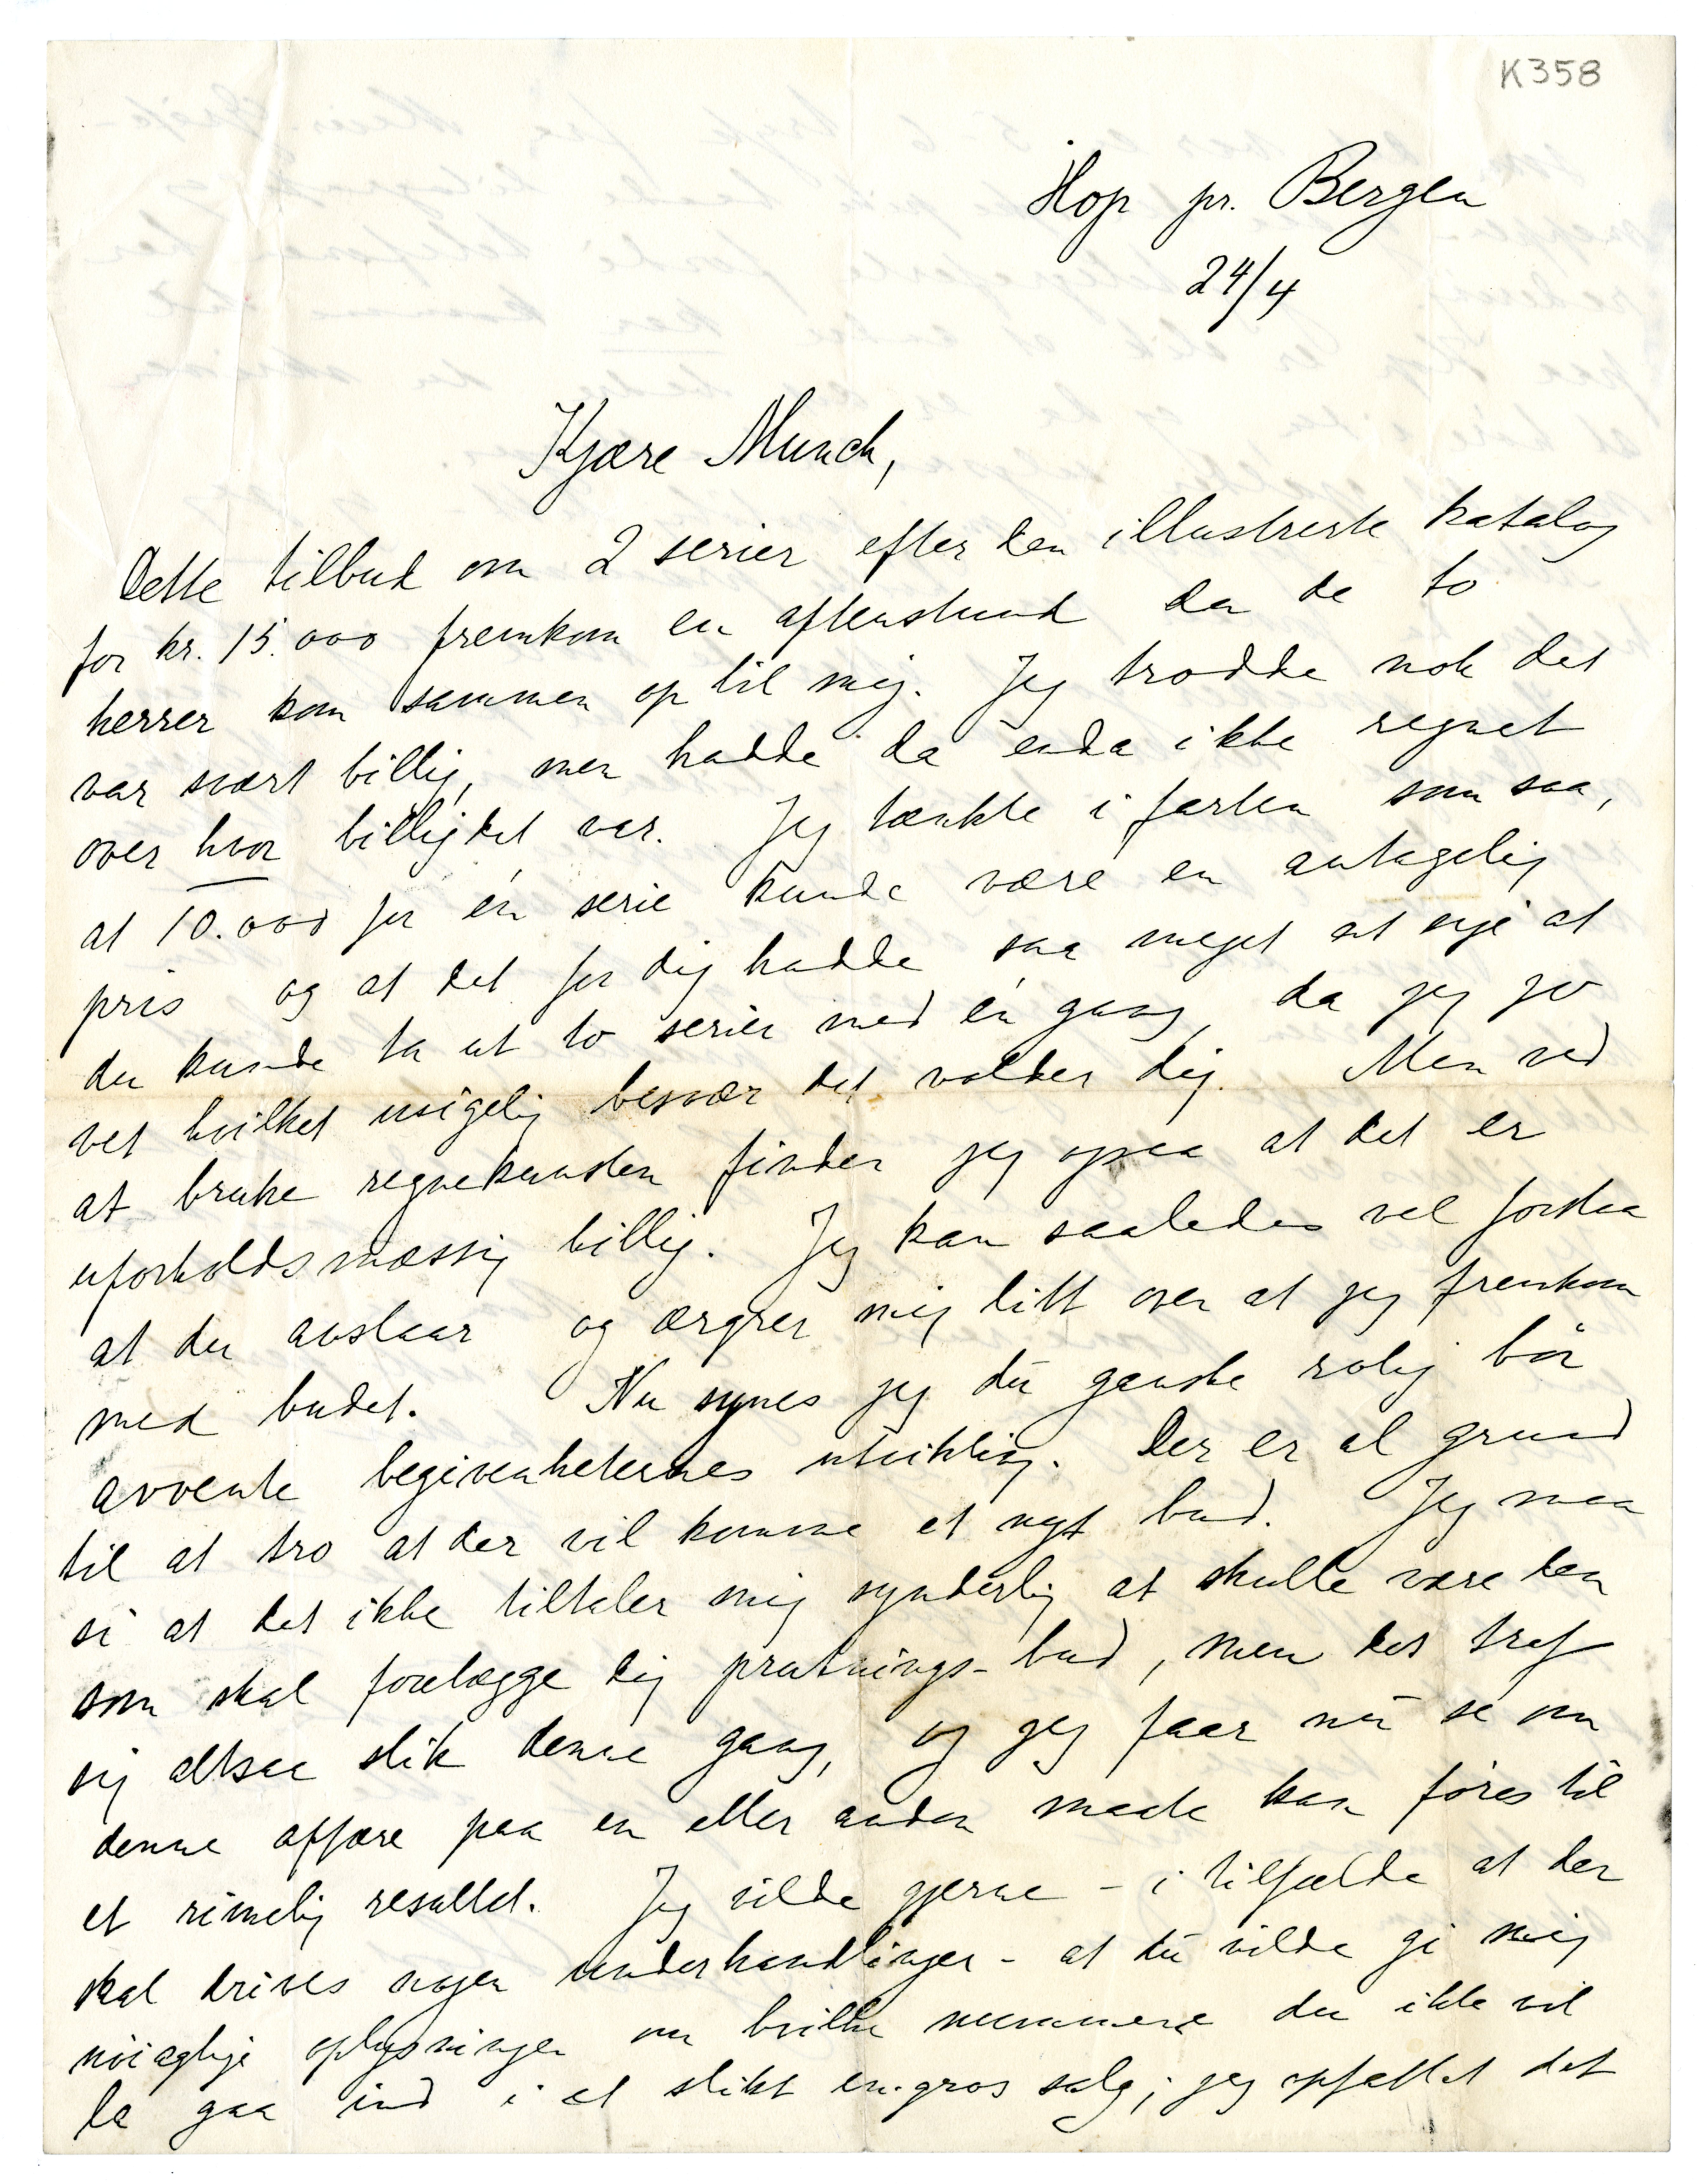 K358
Hop pr. Bergen
24/4
Kjære Munch,
Dette tilbud om 2 serier efter den illustrerte katalog
for kr. 15.000 fremkom en aftenstund da de to
herrer kom sammen op til mig. Jeg trodde nok det
var svært billig, men hadde da enda ikke regnet
over hvor billig det var. Jeg tænkte i farten som saa,
at 10.000 for én serie kunde være en antagelig
pris og at det for dig hadde saa meget at sige at
du kunde ta ut to serier med én gang, da jeg jo
vet hvilket usigelig besvær det volder dig. Men ved
at bruke regnekunsten finder jeg ogsaa at det er
uforholdsmæssig billig. Jeg kan saaledes vel forstaa
at du avslaar og ærgrer mig litt over at jeg fremkom
med budet. Nu synes jeg du ganske rolig bör
avvente begivenheternes utvikling. Der er al grund
til at tro at der vil komme et nyt bud. Jeg maa
si at det ikke tiltaler mig synderlig at skulle være den
som skal forelægge dig prutnings-bud, men det traf
sig altsaa slik denne gang, og jeg faar nu se om
denne affære paa en eller anden maate kan föres til
et rimelig resultat. Jeg vilde gjerne - i tilfælde at der
skal drives nogen underhandlinger - at du vilde gi mig
nöiagtige oplysninger om hvilke nummere du ikke vil
la gaa ind i et slikt en-gros salg; jeg opfattet det